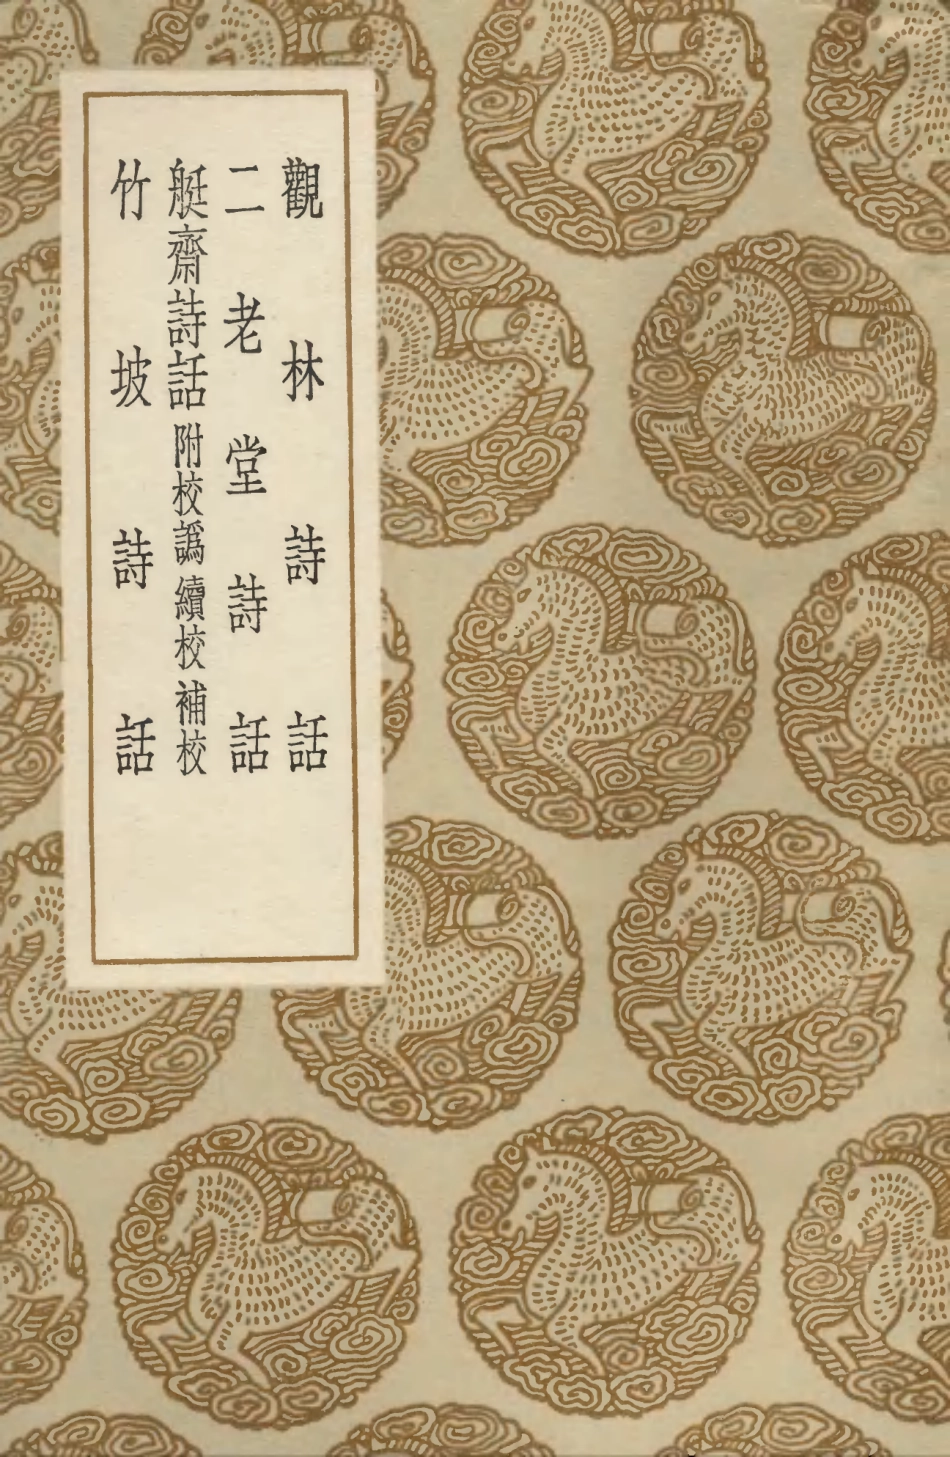 觀林詩話
二老堂詩話
艇齋詩話附校譌續校補校
竹坡詩話